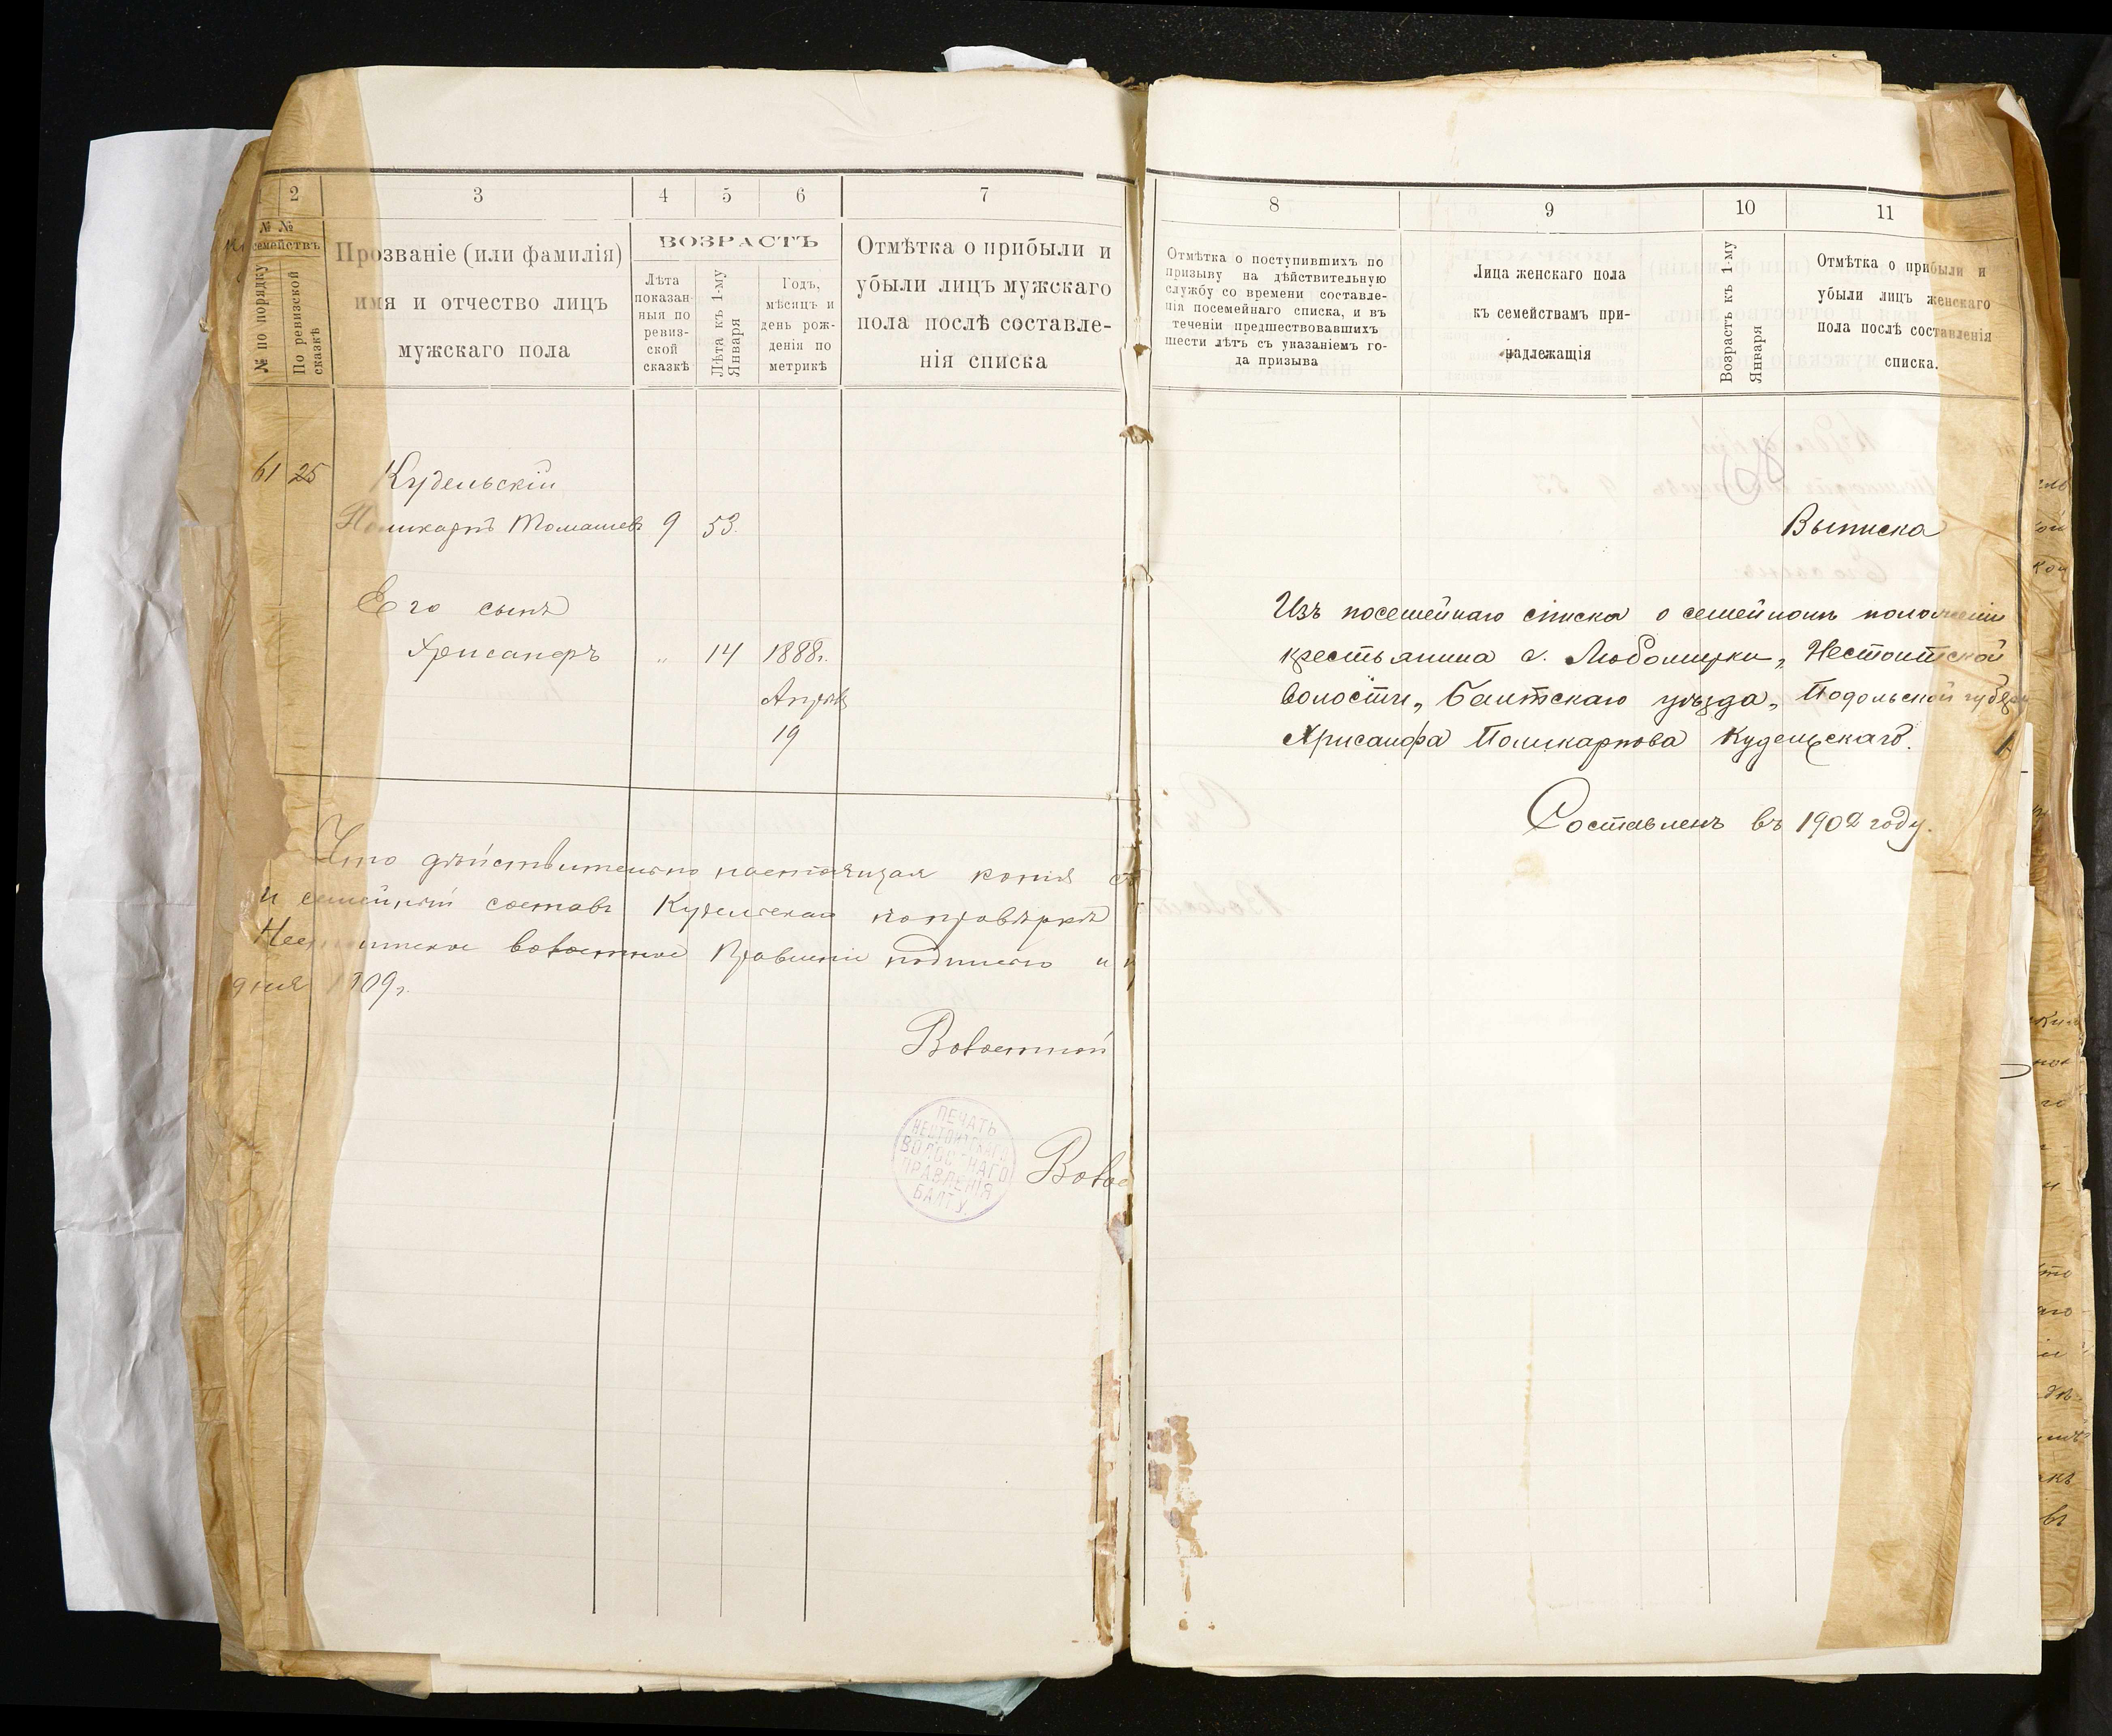 2
3
4
5
6
7
№ №
семействъ
№ по порядку
По ревизской
сказкѣ
Прозваніе (или фамилія)
имя и отчество лицъ
мужскаго пола
ВОЗРАСТЪ
Лѣта
показан-
ныя по
ревиз-
ской
сказкѣ
Лѣта къ 1-му
Января
Годъ,
мѣсяцъ и
день рож-
денія по
метрикѣ
Отмѣтка о прибыли и
убыли лицъ мужскаго
пола послѣ составле-
нія списка
61 25 Кудельскій
Поликарпъ Томашевъ 9 53.
Его сынъ
Хрисанфъ „ 14 1888г.
Апрѣля
19
Что дѣйствительно настоящая копія
и семейный составъ Кудельскаго по провѣркѣ
волостное Правленіе подписью и
дня 1909г.
Волостной
ПЕЧАТЬ
НЕСТОИТСКАГО
ВОЛОСТНАГО
ПРАВЛЕНІЯ
БАЛТ У.
Волос
8
9
10
11
Отмѣтка о поступившихъ по
призыву на дѣйствительную
службу со времени составле-
нія посемейнаго списка, и въ
теченіи предшествовавшихъ
шести лѣтъ съ указаніемъ го-
да призыва
Лица женскаго пола
къ семействамъ при-
надлежащія
Возрастъ къ 1-му
Января
Отмѣтка о прибыли и
убыли лицъ женскаго
пола послѣ составленія
списка.
Выписка
Изъ посемейнаго списка о семейномъ положеніи
крестьянина с. Любомирки, Нестоитской
волости, Балтскаго уѣзда, Подольской губерн
Хрисанфа Поликарпова Кудельскаго.
Составленъ въ 1902 году.